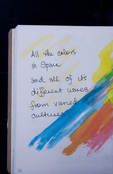 All the colors
in Space
and all of it
different ones
from varied
cultures